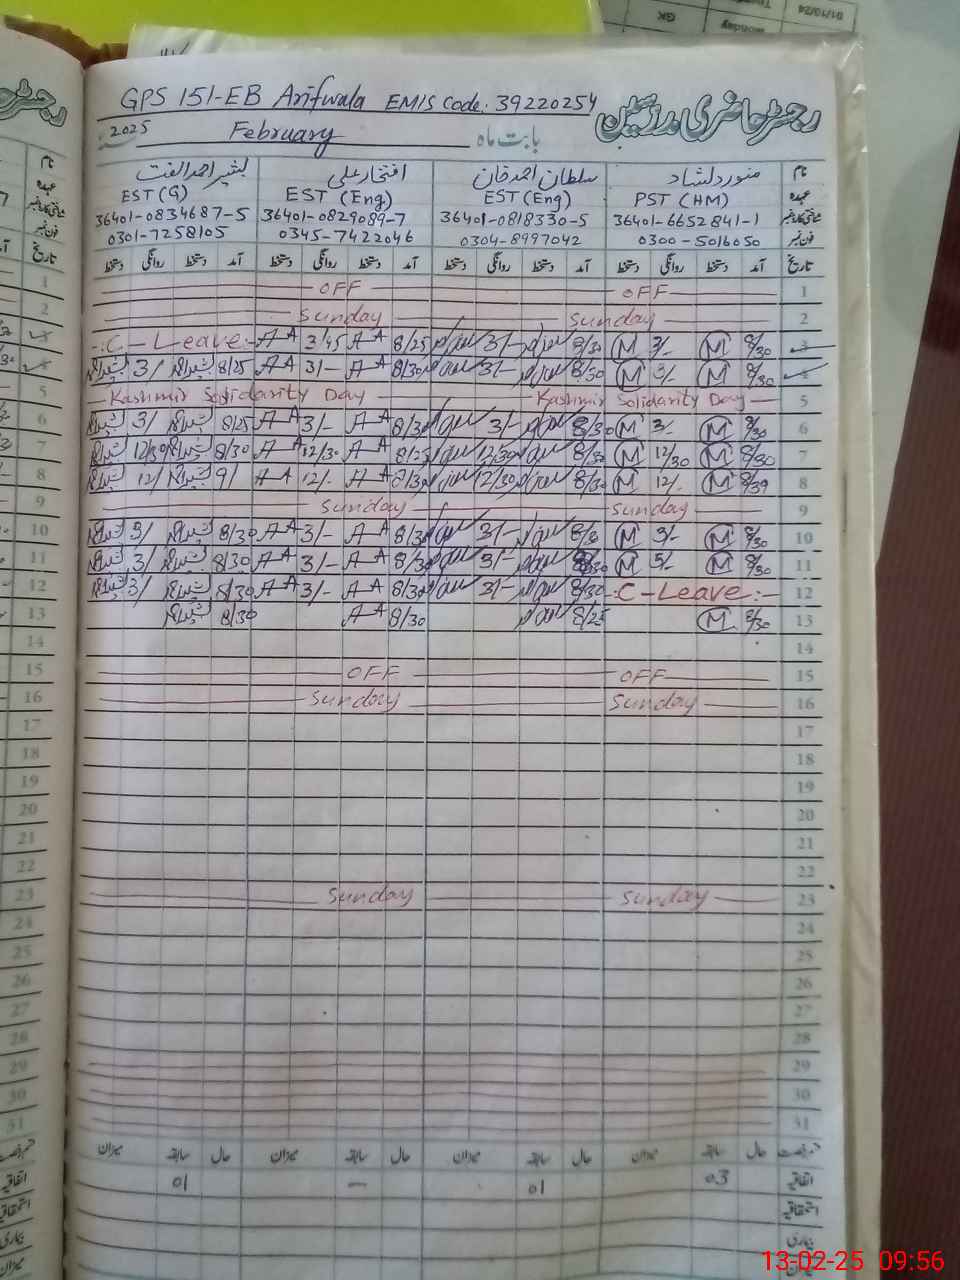 GPS 151-EB Arifwala EMIS Code: 39220254
رجسٹر حاضری مدرسین
2025 February بابت ماہ
بشیر احمد الفت افتخار علی سلطان احمد خان منور دلشاد نام
EST (G) EST (Eng) EST (Eng) PST (HM) عہدہ
36401-0834687-5 36401-0829089-7 36401-0818330-5 36401-6652841-1 شناختی کارڈ نمبر
0301-7258105 0345-7422046 0304-8997042 0300-5016050 فون نمبر
دستخط روانگی دستخط آمد دستخط روانگی دستخط آمد دستخط روانگی دستخط آمد دستخط روانگی دستخط آمد تاریخ
OFF OFF 1
Sunday Sunday 2
C-Leave:- 3/45 8/25 3/- 8/30 M 3/- M 8/30 3
3/ 8/25 3/- 8/30 3/- 8/30 M 3/- M 8/30 4
Kashmir Solidarity Day Kashmir Solidarity Day 5
3/ 8/25 3/- 8/30 3/- 8/30 M 3/- M 8/30 6
12/30 8/30 12/30 8/25 12/30 8/30 M 12/30 M 8/30 7
12/ 9/ 12/- 12/30 8/30 M 12/- M 8
Sunday Sunday 9
3/ 8/30 3/- 8/30 3/- 8/30 M 3/- M 8/30 10
3/ 8/30 3/- 8/30 3/- M M 8/30 11
3/ 8/30 3/- 8/30 3/- 8/30 C-Leave:- 12
8/30 8/30 8/25 M 8/30 13
14
OFF OFF 15
Sunday Sunday 16
17
18
19
20
21
22
Sunday Sunday 23
24
25
26
27
28
29
30
31
میزان سابقہ حال میزان سابقہ حال میزان سابقہ حال میزان سابقہ حال
01 — 01 03 اتفاقیہ
استحقاقیہ
بیماری
میزان
13-02-25 09:56